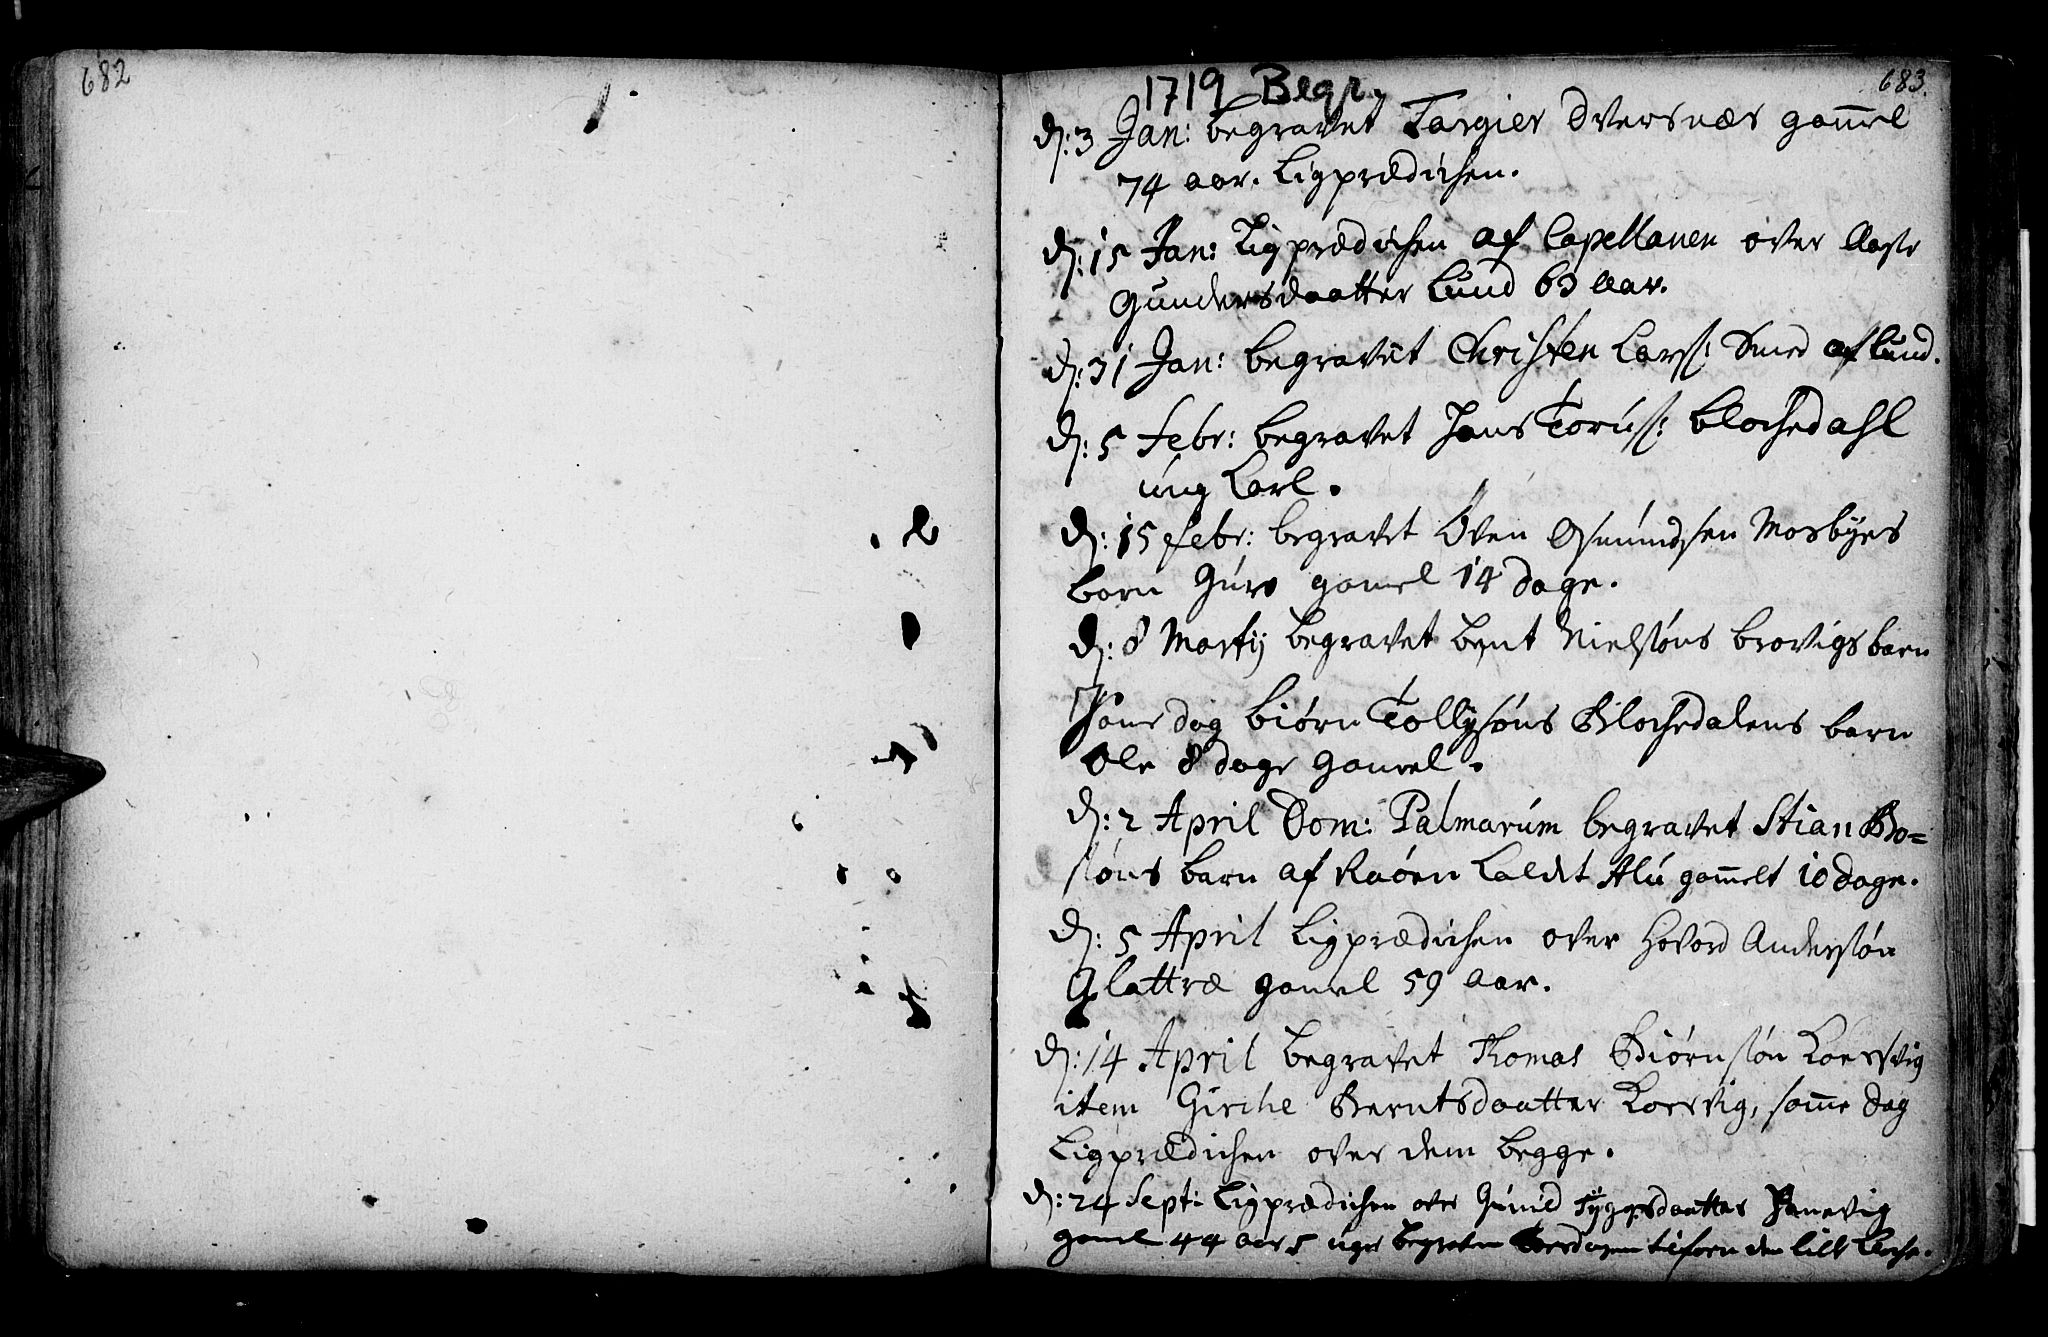 682
1719 Begr. 683.
d: 3 Jan: begravet Targier Dversnæs gam̄el
74 aar. Ligprædichen.
d: 15 Jan: Ligprædichen af Capellanen over Aaste
Gundersdaatter Lund 63 Aar.
d: 31 Jan: begravet Christen Larss: Smed af Lund.
d: 5 Febr: begravet Jens Torus: Blochedahl
ung Karl.
d: 15 Febr: begravet Sven Osmundsen Mosbyes
barn Guro gamel 14 dage.
d: 8 Martij begravet bent Nielsøns brovigs barn
Same dag Biørn Tollysøns Blochedalens barn
Ole 8 dage gamel.
d: 2 April Dom: Palmarum begravet Stian Bo=
søns barn af Raøen kaldet Alu gam̄elt 10 dage.
d: 5 April Ligprædichen over Hovord Andersøn
Glattræ gamel 59 aar.
d: 14 April begravet Thomas Biørnsøn Koersvig
item Girche Berntsdaatter Korsvig, sam̄e dag
Ligprædichen over dem begge.
d: 24 Sept: Ligprædichen over Gunild Tyggesdaatter
gamel 44 aar 5 uger begraven tilforn den lille Kloche.